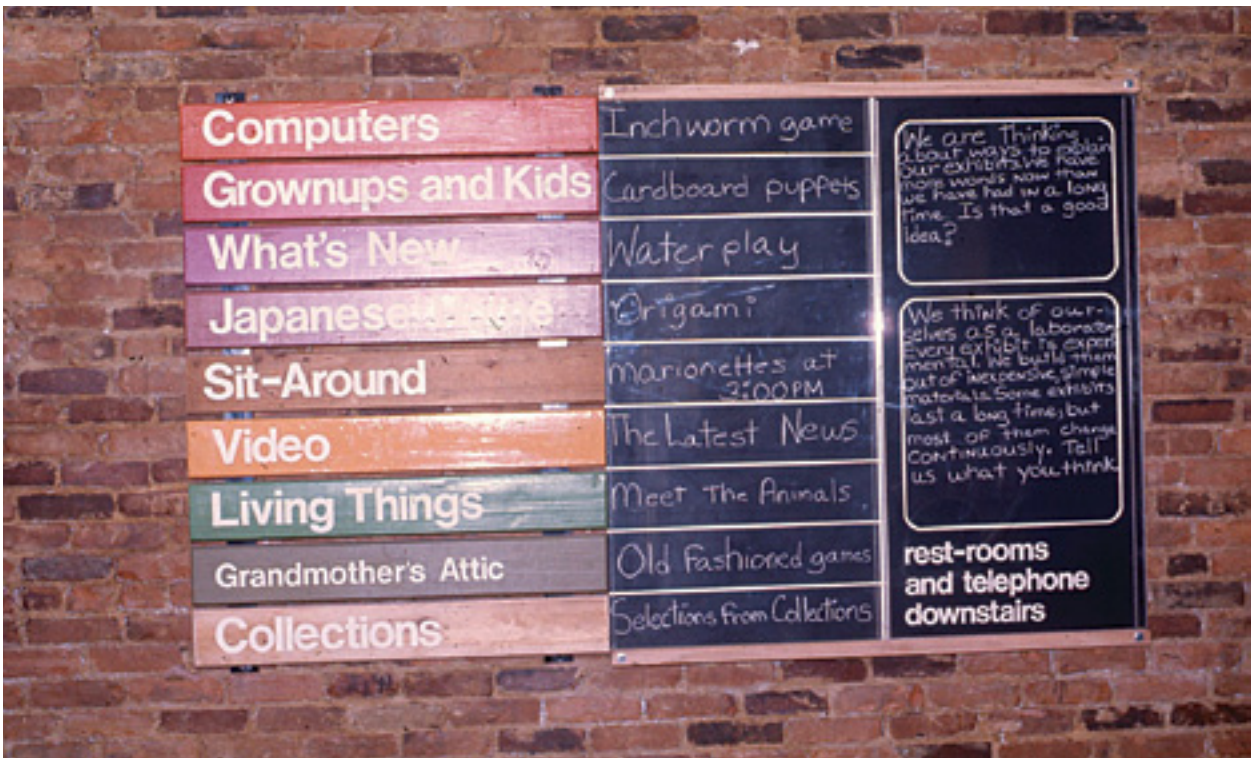 Computers
Grownups and Kids
What's New
Japanese
Sit-Around
Video
Living Things
Grandmother's Attic
Collections
Inchworm game
Cardboard puppets
Water play
Origami
marionettes at
3:00 PM
The Latest News
Meet The Animals
Old Fashioned games
Selections from Collections
We are thinking
about ways to explain
our exhibits. We have
more words now than
we have had in a long
time. Is that a good
idea?
We think of our-
selves as a laborator
Every exhibit is experi
mental. We build them
out of inexpensive simple
materials. Some exhibits
last a long time, but
most of them change
continuously. Tell
us what you think
rest-rooms
and telephone
downstairs